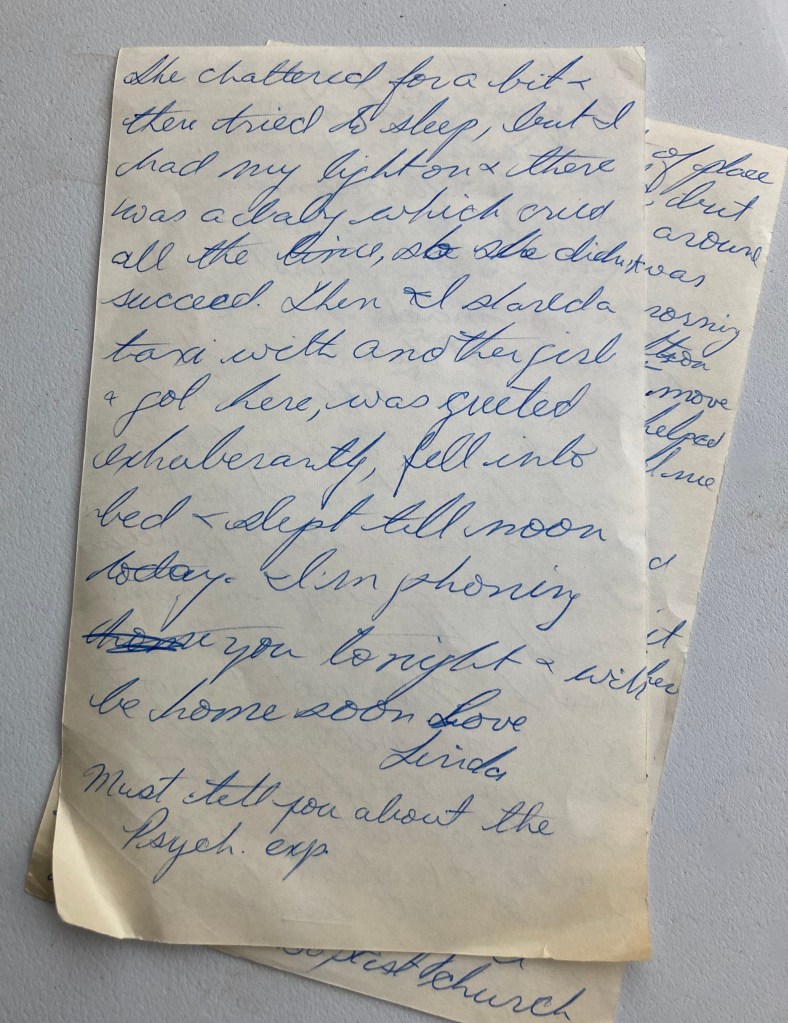 She chattered for a bit &
then tried to sleep, but I
had my light on & there
was a baby which cried
all the time, so she didn't
succeed. Then I shared a
taxi with another girl
& got here, was greeted
exhuberantly, fell into
bed & slept till noon
today. I'm phoning
you tonight & will
be home soon Love
Linda
Must tell you about the
Psych. exp
of place
but
around
was
move
helped
me
it
church